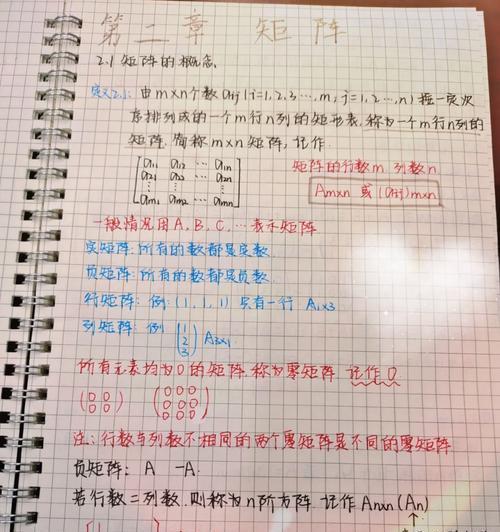 第二章 矩阵
2.1 矩阵的概念.
定义2.1: 由m×n个数aij(i=1,2,3…,m, j=1,2…,n)按一定次
序排列成的一个m行n列的矩形表.称为一个m行n列的
矩阵.简称m×n矩阵,记作.
a11 a12 … a1n
a21 a22 … a2n
⋮ ⋮
am1 am2 … amn
矩阵的行数m 列数n
Am×n 或 (aij)m×n
一般情况用A, B, C, …表示矩阵
实矩阵:所有的数都是实数
负矩阵:所有的数都是负数
行矩阵: 例:(1, 1, 1) 只有一行 A1×3
列矩阵: 例 (1 2 3) A3×1
所有元素均为0的矩阵.称为零矩阵 记作0
(0 0 0 0) (0 0 0 0 0 0 0 0 0)
注:行数与列数不相同的两个零矩阵是不同的零矩阵
负矩阵: A -A.
若行数=列数.则称为n阶方阵.记作An×n(An)